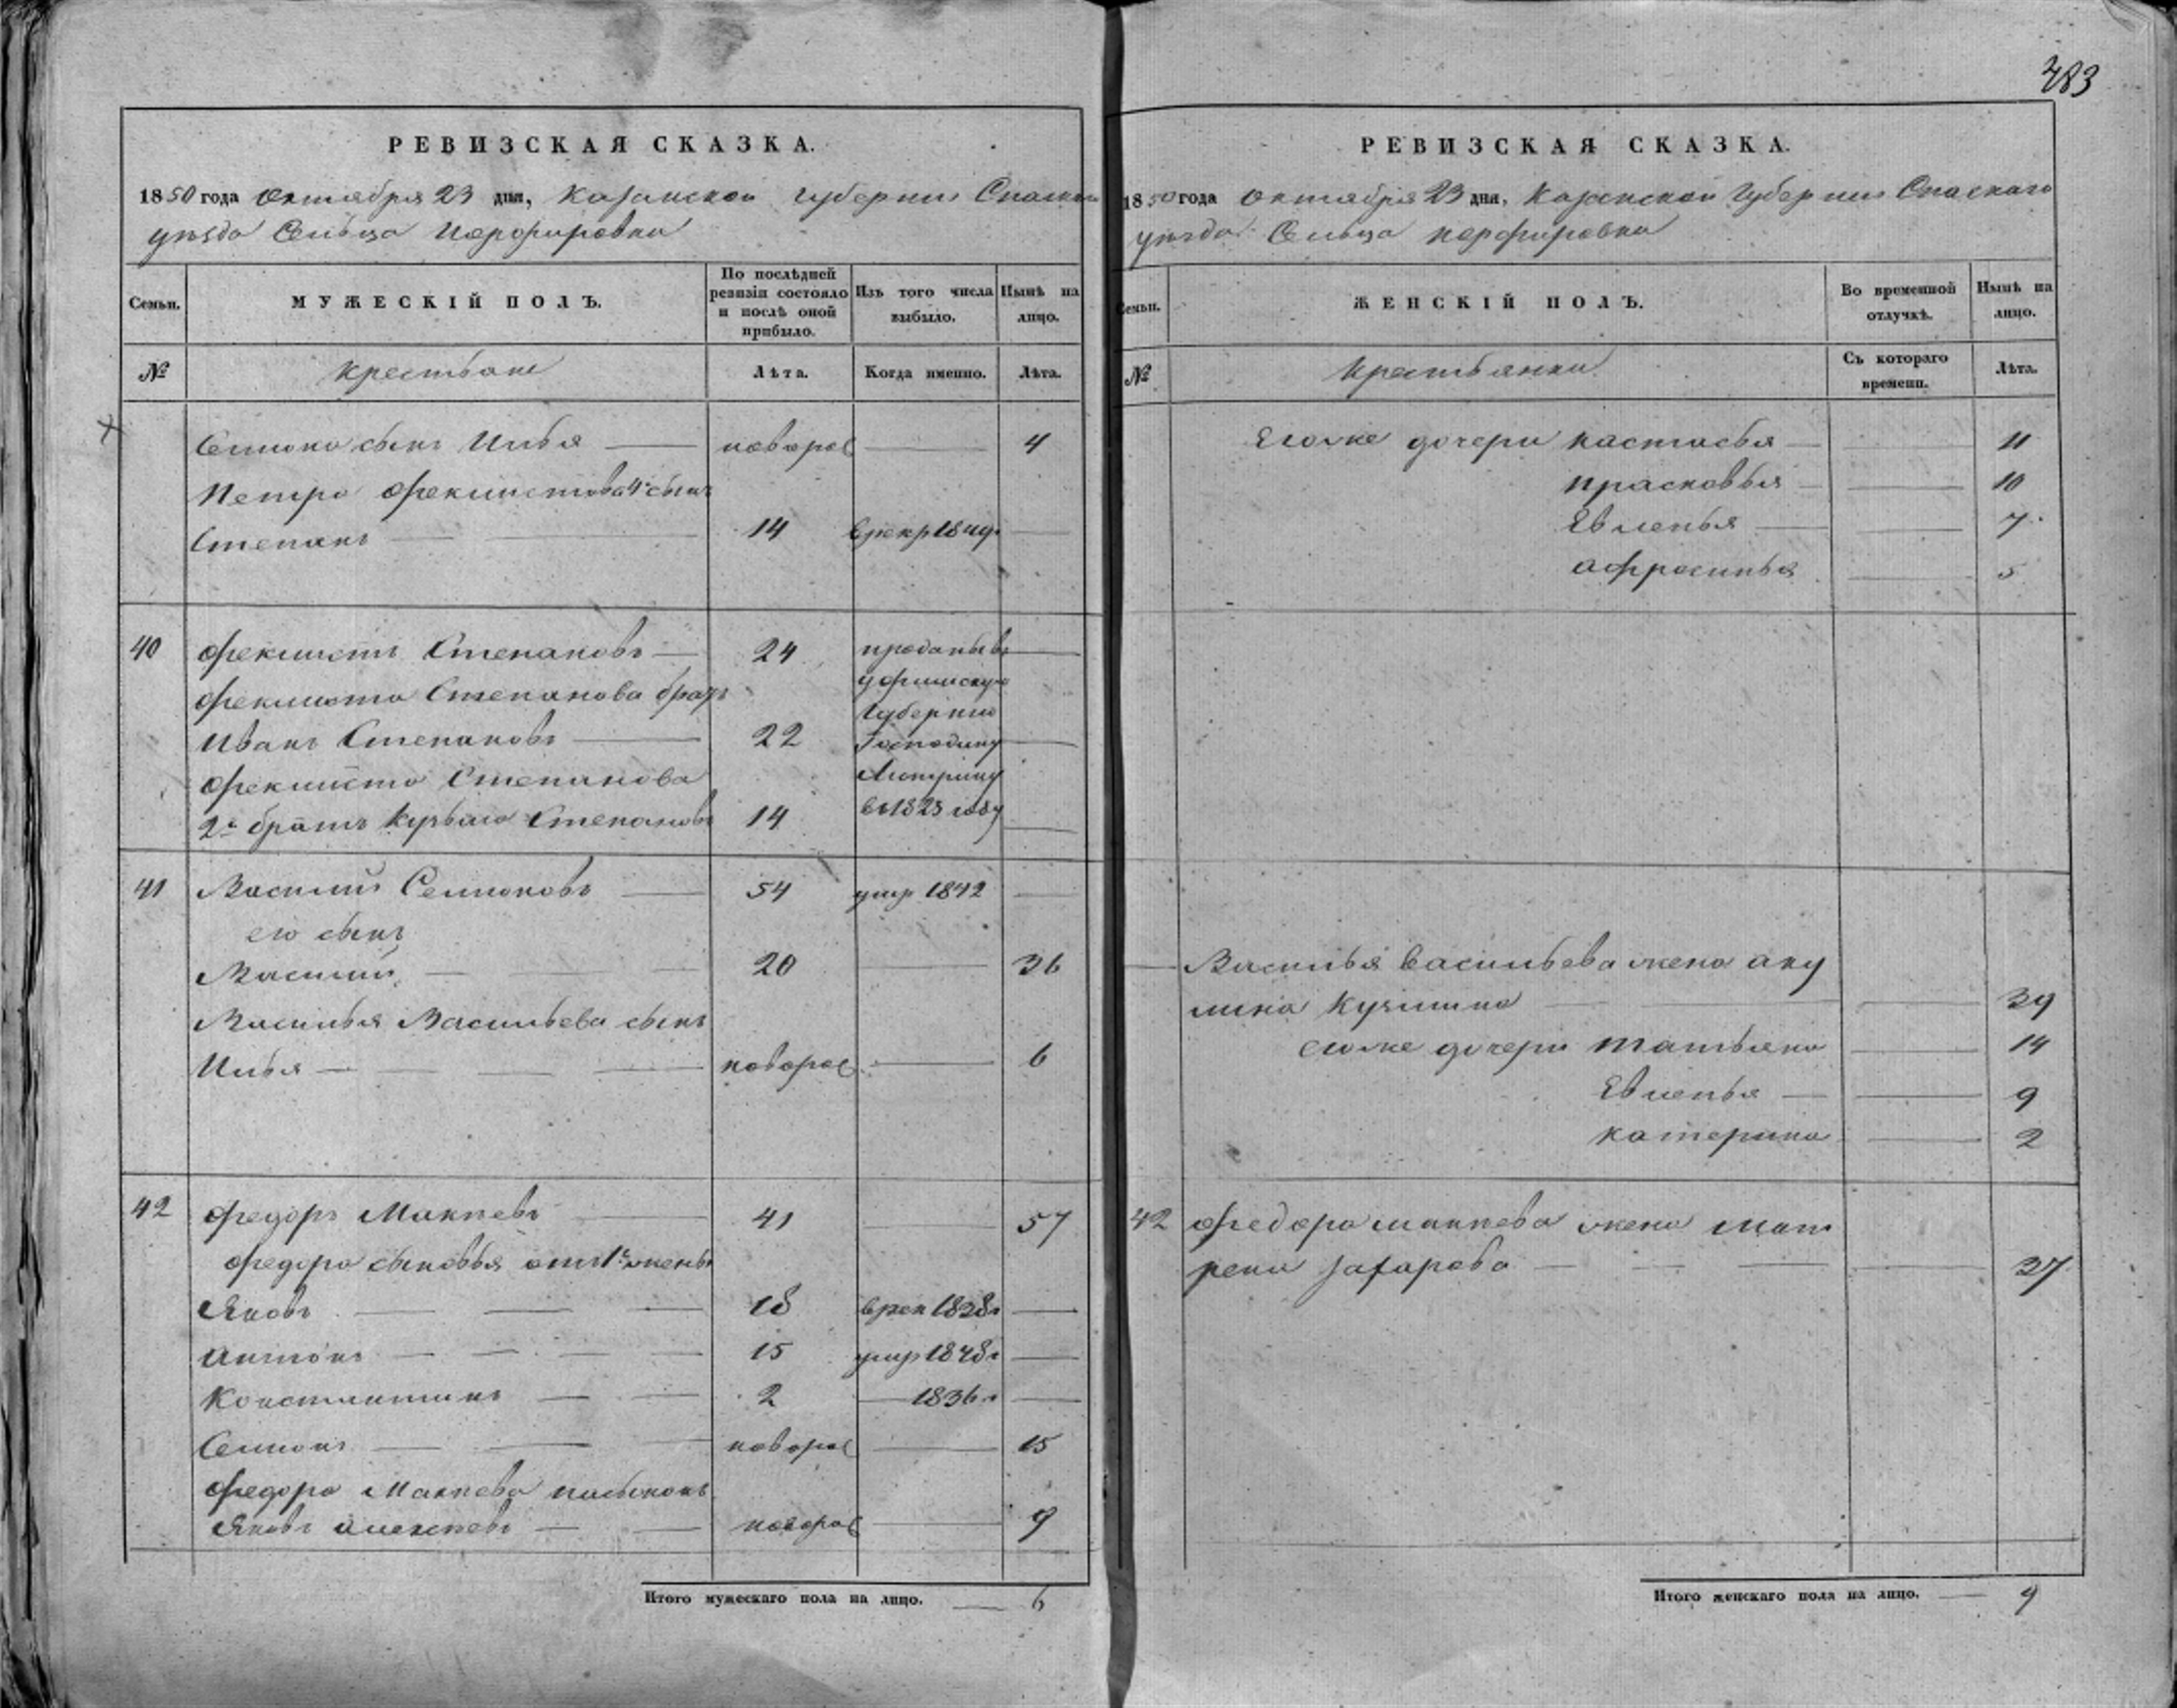 483
РЕВИЗСКАЯ СКАЗКА.
1850 года октября 23 дня, Казанской губернии Спаскаго
уезда Сельца Порфировки
Семьи.
МУЖЕСКІЙ ПОЛЪ.
По послѣдней ревизіи состояло и послѣ оной прибыло.
Изъ того числа выбыло.
Нынѣ на лицо.
№
крестьяне
Лѣта.
Когда именно.
Лѣта.
Семиона сынъ Илья новорож 4
Петра Феклистова 4й сынъ
Степанъ 14 врекр 1849
40 Феклистъ Степановъ 24 проданы въ
Феклиста Степанова братъ уфимскую
губернию
Иванъ Степановъ 22 Господину
Феклиста Степанова
2й братъ Кузьма Степановъ 14 в 1823 году
41 Василий Семионовъ 54 умр 1842
его сынъ
Василий 20 36
Василья Васильева сынъ
Илья новорож 6
42 Федоръ Макеевъ 41 57
Федора сыновья от 1й жены
Яковъ 18 врек 1838г
Антонъ 15 умр 1848г
Константинъ 2 1836г
Семионъ новорож 15
Федора Макеева пасынокъ
Яковъ Алексеевъ новорож 9
Итого мужескаго пола на лицо. 6
РЕВИЗСКАЯ СКАЗКА.
1850 года октября 23 дня, Казанской губернии Спаскаго
уезда Сельца порфировки
Семьи.
ЖЕНСКІЙ ПОЛЪ.
Во временной отлучкѣ.
Нынѣ на лицо.
№
крестьянки
Съ котораго времени.
Лѣта.
Егоже дочери настасья 11
прасковья 10
Евленья 7
афросинья 5
Василья васильева жена аку
лина Кузмина 39
егоже дочери татьяна 14
Евленья 9
катерина 2
42 Федора макеева жена мат
рена захарова 37
Итого женскаго пола на лицо. 9